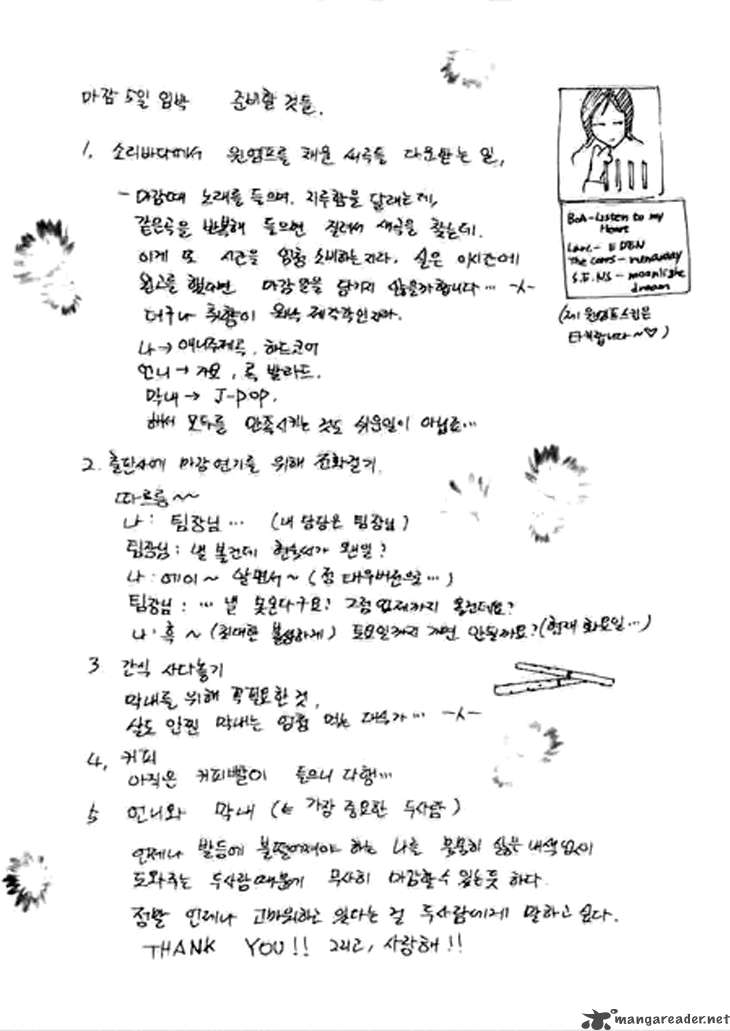 마감 5일 임박 준비할 것들.
1. 소리바다에서 윈엠프를 채울 새곡들 다운받는 일,
- 마감때 노래를 들으며, 지루함을 달래는데,
같은곡을 반복해 들으면 질려서 새곡을 찾는데.
이게 또 시간을 엄청 소비하는지라, 실은 이시간에
원고를 했다면 마감일을 넘기지 않을까합니다… -ㅅ-
더구나 취향이 워낙 제각각인지라.
나→ 애니주제곡, 하드코어
언니→ 가요, 록 발라드.
막내→ J-POP.
해서 모두를 만족시키는 것도 쉬운일이 아닙죠…
BoA-Listen to my
Heart
Larc.- EDEN
The corrs- runaway
S.E.NS- moonlight
dream
(제 윈엠프스킨은
타케랍니다~♡)
2. 출판사에 마감연기를 위해 전화걸기.
따르릉~~
나: 팀장님… (내 담당은 팀장님)
팀장님: 낼 볼건데 현숙씨가 왠일?
나: 에이~ 알면서~ (좀 태우버전으로…)
팀장님: … 낼 못온다구요? 그럼 언제까지 올건데요?
나: 흑~ (최대한 불쌍하게) 토요일까지 가면 안될까요? (현재 화요일…)
3. 간식 사다놓기
막내를 위해 꼭필요한 것,
살도 안찐 막내는 엄청 먹는 대식가… -ㅅ-
4. 커피
아직은 커피빨이 들으니 다행…
5. 언니와 막내 (← 가장 중요한 두사람)
언제나 발등에 불떨어져야 하는 나를 묵묵히 싫은 내색 없이
도와주는 두사람때문에 무사히 마감할수 있는듯 하다.
정말 언제나 고마워하고 있다는 걸 두사람에게 말하고 싶다.
THANK YOU!! 그리고, 사랑해!!
mangareader.net